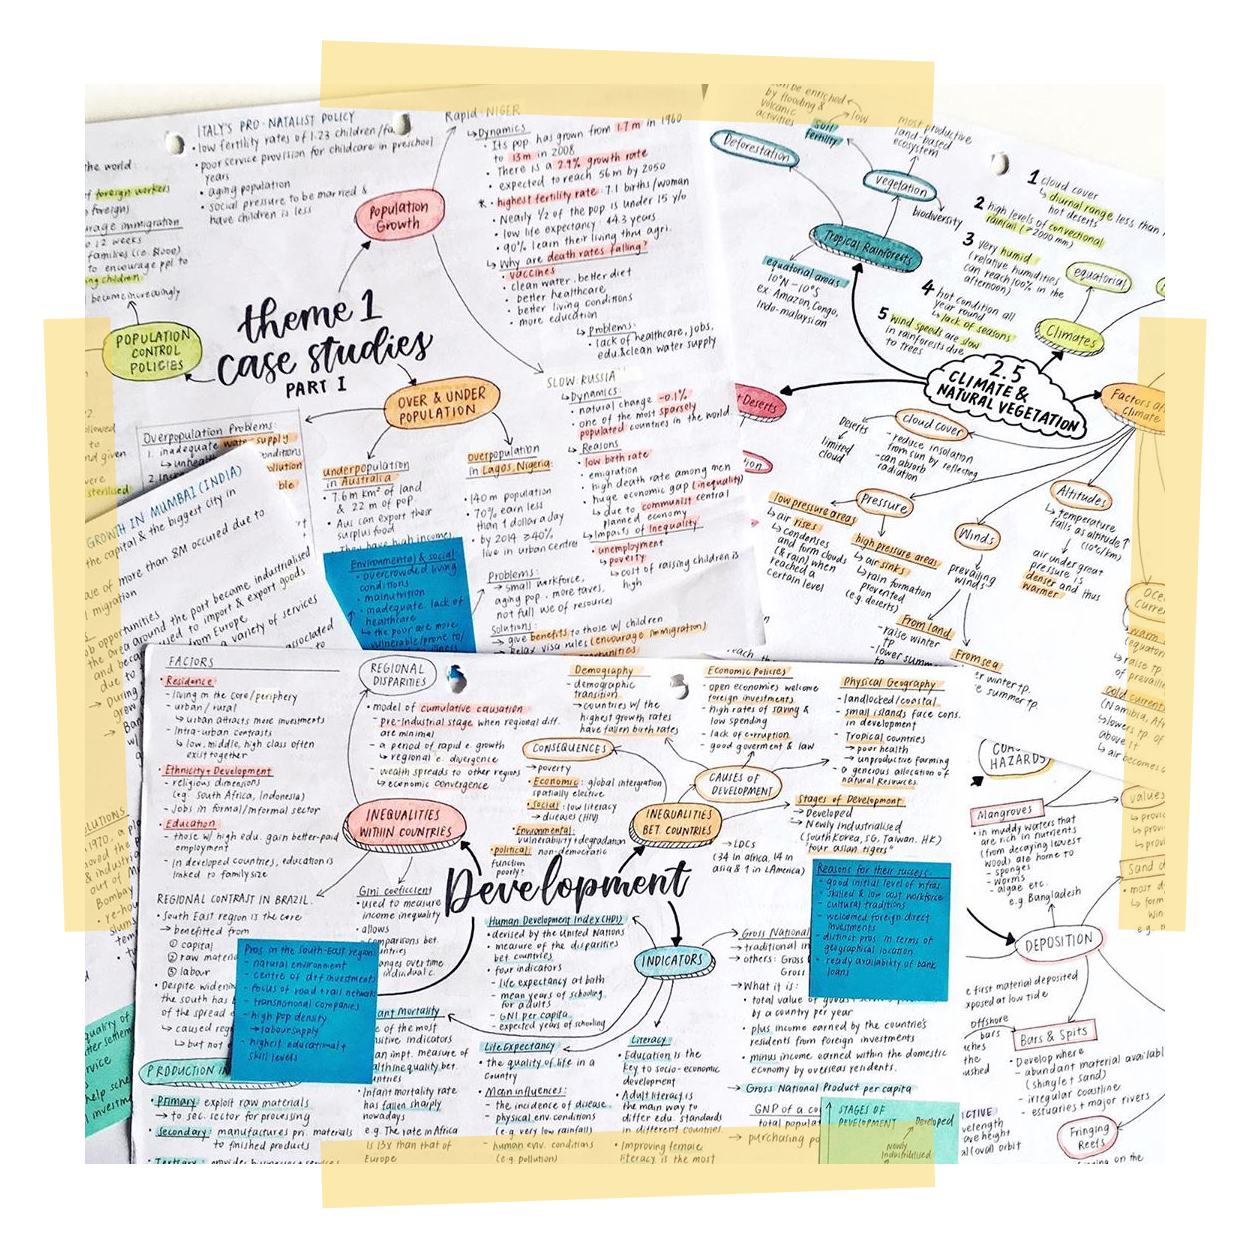 ITALY'S PRO-NATALIST POLICY
• low fertility rates of 1.23 children/fa
• poor service provision for childcare in preschool
years
• aging population
• social pressure to be married &
have children is less
the world:
foreign workers
foreigns
immigration
12 weeks
families (i.e. $1000)
to encourage ppl to
children
become increasingly
POPULATION
CONTROL
POLICIES
theme 1
case studies
PART I
Population
Growth
Rapid-NIGER
↳ Dynamics
• Its pop has grown from 1.7m in 1960
to 13m in 2008
• There is a 2.9% growth rate
• expected to reach 56m by 2050
* • highest fertility rate: 7.1 births/woman
• Nearly ½ of the pop is under 15 y/o
• low life expectancy: 44.3 years
• 90% learn their living thru agri.
↳ Why are death rates falling?
• vaccines
• clean water, better diet
• better healthcare
• better living conditions
• more education
↳ Problems:
• lack of healthcare, jobs,
edu & clean water supply
SLOW: RUSSIA
↳ Dynamics:
• natural change -0.1%
• one of the most sparsely
populated countries in the world
↳ Reasons
• low birth rate
• emigration
• high death rate among men
• huge economic gap (inequality)
↳ due to communist central
planned economy
↳ Impacts of Inequality
• unemployment
• poverty
↳ cost of raising children is
high
OVER & UNDER
POPULATION
Overpopulation Problems:
1. inadequate water supply
↳ unhea
underpopulation
in Australia
• 7.6m km² of land
& 22 m of pop.
• Aus can export their
surplus food
overpopulation
in Lagos, Nigeria:
• 140m population
• 70% earn less
than 1 dollar a day
• by 2014 ≥40%
live in urban centre
Environmental & social:
• overcrowded living
conditions
• malnutrition
• inadequate, lack of
healthcare
↳ the poor are more
vulnerable/prone to
Problems:
→ Small workforce,
aging pop., more taxes,
not full use of resources
Solutions:
→ give benefits to those w/ children
→ Relax visa rules (encourage immigration)
GROWTH IN MUMBAI (INDIA)
the capital & the biggest city in
of more than 8M occured due to
migration
opportunities
the area around the port became industrialised
used to import & export goods
from Europe
a variety of services
associated
Deforestation
by flooding &
volcanic
activities
soil
fertility
low
most productive
land-based
ecosystem
Vegetation
biodiversity
Tropical Rainforests
equatorial areas
10°N - 10°S
ex: Amazon, Congo,
Indo-malaysian
1 cloud cover
↳ diurnal range less than
hot deserts
2 high levels of convectional
rainfall (≥2000 mm)
3 very humid
(relative humidities
can reach 100% in the
afternoon)
4 hot condition all
year round
↳ lack of seasons
5 wind speeds are slow
in rainforests due
to trees
equatorial
Climates
2.5
CLIMATE &
NATURAL VEGETATION
Deserts
Factors
Climate
cloud cover
- reduce insolation
from sun by reflecting
- can absorb
radiation
Deserts
↓
limited
cloud
Pressure
low pressure areas
↳ air rises
↳ condenses
and form clouds
(& rain) when
reached a
certain level
high pressure areas
↳ air sinks
↳ rain formation
prevented
(e.g. deserts)
Winds
prevailing
winds
From land
- raise winter
tp.
- lower summ
From sea
winter tp.
summer tp.
Altitudes
↳ temperature
falls as altitude ↑
(10°c/km)
air under great
pressure is
denser and thus
warmer
FACTORS
• Residence
- living in the core/periphery
- urban/rural
↳ urban attracts more investments
- Intra-urban contrasts
↳ low, middle, high class often
exist together
• Ethnicity + Development
- religious dimensions
(e.g. South Africa, Indonesia)
- Jobs in formal/informal sector
• Education
- those w/ high edu. gain better-paid
employment
- in developed countries, education is
linked to family size
REGIONAL
DISPARITIES
• model of cumulative causation
- pre-industrial stage when regional diff.
are minimal
- a period of rapid e. growth
↳ regional e. divergence
- wealth spreads to other regions
↳ economic convergence
INEQUALITIES
WITHIN COUNTRIES
REGIONAL CONTRAST IN BRAZIL
• South East region is the core
→ benefitted from
① capital
② raw mater
③ labour
• Despite widenin
the south has
of the spread
↳ caused reg
↳ but not
Pros in the South-East region:
- natural environment
- centre of d+f investments
- focus of road + rail network
- transnational companies
- high pop density
→ labour supply
- highest educational +
skill levels
PRODUCTION
• Primary: exploit raw materials
→ to sec. sector for processing
• Secondary: manufactures pri. materials
to finished products
Gini coefficient
• used to measure
income inequality
• allows
Mortality
of the most
indicators
an impt. measure of
• Infant mortality rate
has fallen sharply
nowadays
e.g. The rate in Africa
is 13x than that of
Europe
Development
Demography
- demographic
transition
→ countries w/ the
highest growth rates
have fallen birth rates
CONSEQUENCES
→ poverty
• Economic: global integration
spatially elective
• Social: low literacy
→ diseases (HIV)
• Environmental:
vulnerability + degradation
• political: non-democratic
function
poorly?
Economic Policies
- open economies welcome
foreign investments
- high rates of saving &
low spending
- lack of corruption
- good goverment & law
CAUSES OF
DEVELOPMENT
Physical Geography
- landlocked/coastal
- small islands face cons.
in development
- Tropical countries
→ poor health
→ unproductive farming
- a generous allocation of
natural Resources
INEQUALITIES
BET. COUNTRIES
Stages of Development
→ Developed
→ Newly Industrialised
(South Korea, SG, Taiwan, HK)
"four asian tigers"
→ LDCs
(34 in africa, 14 in
asia & 1 in L America)
Reasons for their success:
- good initial level of infras.
- skilled & low cost workforce
- cultural traditions
- welcomed foreign direct
investments
- distinct pros in terms of
geographical location
- ready availability of bank
loans
INDICATORS
Human Development Index (HDI)
• derived by the United Nations
• measure of the disparities
bet countries
• four indicators
- life expectancy at birth
- mean years of schooling
for adults
- GNI per capita
- expected years of schooling
Life Expectancy
• the quality of life in a
Country
• Main influences:
- the incidence of disease
- physical env. conditions
(e.g. very low rainfall)
- human env. conditions
(e.g. pollution)
Literacy
• Education is the
key to socio-economic
development
• Adult literacy is
the main way to
differ edu. standards
in different countries
• Improving female
literacy is the most
Gross National
→ traditional in
→ others: Gross
Gross
→ What it is:
• total value of goods
by a country per year
• plus income earned by the countrie's
residents from foreign investments
• minus income earned within the domestic
economy by overseas residents.
→ Gross National Product per capita
GNP of a co
total populat
→ purchasing po
STAGES OF
DEVELOPMENT
Developed
Newly
Industrialised
HAZARDS
Mangroves
• in muddy waters that
are rich in nutrients
(from decaying leaves,
wood) are home to
- sponges
- worms
- algae etc.
e.g Bangladesh
DEPOSITION
first material deposited
exposed at low tide
Offshore
bars
Bars & Spits
• Develop where
- abundant material availabl
(shingle + sand)
- irregular coastline
- estuaries + major rivers
Fringing
Reefs
values
sand d